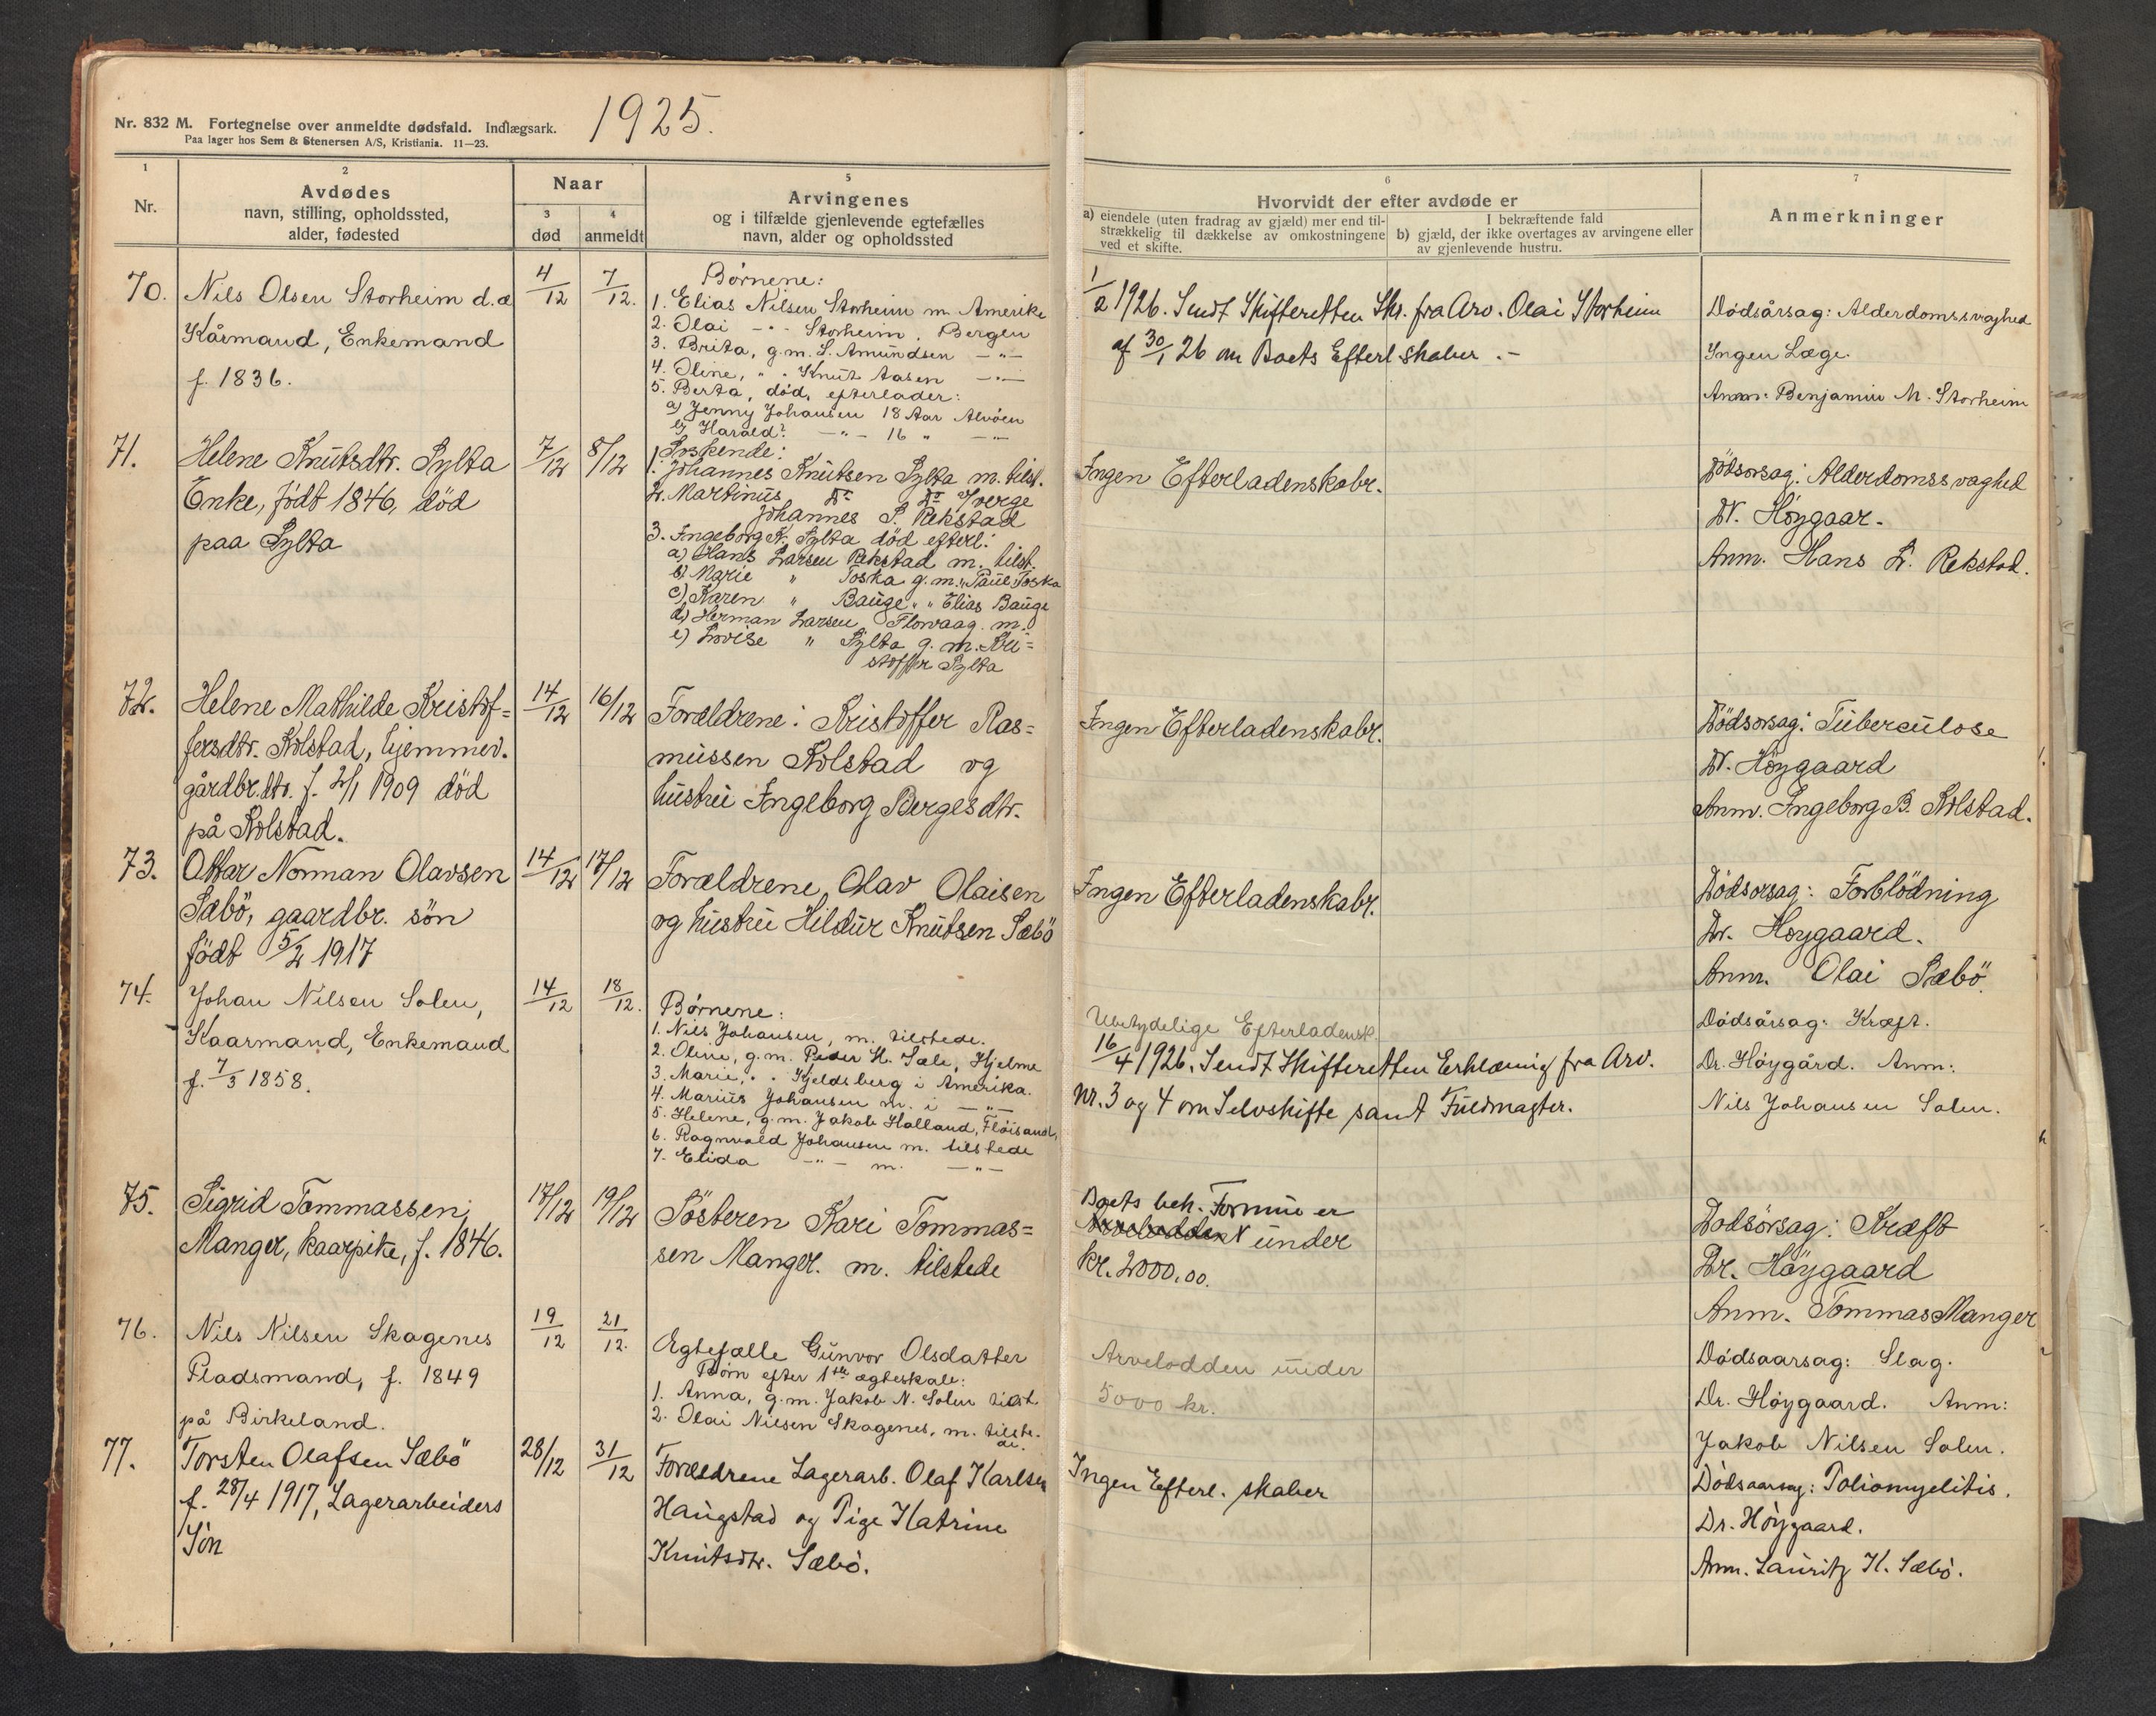 Nr. 832 M. Fortegnelse over anmeldte dødsfald. Indlægsark.
Paa lager hos Sem & Stenersen A/S, Kristiania. 11—23.
1925.
1
Nr.
2
Avdødes
navn, stilling, opholdssted,
alder, fødested
Naar
3
død
4
anmeldt
5
Arvingenes
og i tilfælde gjenlevende egtefælles
navn, alder og opholdssted
6
Hvorvidt der efter avdøde er
a) eiendele (uten fradrag av gjæld) mer end til-
strækkelig til dækkelse av omkostningene
ved et skifte.
I bekræftende fald
b) gjæld, der ikke overtages av arvingene eller
av gjenlevende hustru.
7
Anmerkninger
70.
Nils Olsen Storheim d.æ
Kårmand, Enkemand
f. 1836.
4/12
7/12.
Børnene:
1. Elias Nilsen Storheim m. Amerika
2. Olai -"- Storheim, Bergen
3. Brita, g.m. S. Amundsen -"-
4. Oline, " " Knut Aasen -"-
5. Berta, død, efterlader:
a) Jenny Johansen 18 Aar Alvøen
b) Harald? -"- 16 " -"-
1/2 1926. Sendt Skifteretten Skr. fra Arv. Olai Storheim
af 30/1 26 om Boets Efterl skaber.-
Dødsårsag: Alderdomssvaghed
Ingen Læge.
Anm: Benjamin M. Storheim
71.
Helene Knutsdtr. Sylta
Enke, født 1846, död
paa Sylta
7/12
8/12
Søskende:
1. Johannes Knutsen Sylta m. tilst.
2. Martinus Do Do Verge
Johannes S. Rekstad
3. Ingeborg K. Sylta död efterl:
a) Hans Larsen Rekstad m. tilst.
b) Marie " Toska g.m. Paul Toska
c) Karen " Bauge " " Elias Bauge
d) Herman Larsen Florvaag. m.
e) Lovise " Sylta g. m. Kri=
stoffer Sylta
Ingen Efterladenskabr.
Dödsorsag: Alderdomssvaghed
Dr. Höygaar-
Anm. Hans L. Rekstad.
72.
Helene Mathilde Kristof=
fersdtr. Kolstad, hjemmev.
gårdbr.dtr. f. 2/1 1909 död
på Kolstad.
14/12
16/12
Forældrene: Kristoffer Ras=
mussen Kolstad og
hustru Ingeborg Bergesdtr.
Ingen Efterladenskabr.
Dödsorsag: Tuberculose
Dr. Höygaard
Anm. Ingeborg B. Kolstad.
73.
Ottar Norman Olavsen
Sæbö, gaardbr. sön
födt 5/2 1917
14/12
17/12
Forældrene, Olav Olaisen
og hustru Hildur Knutsen Sæbö
Ingen Efterladenskabr.
Dödsorsag: Forblödning
Dr. Höygaard.
Anm. Olai Sæbö.
74.
Johan Nilsen Solen,
Kaarmand, Enkemand
f. 7/3 1858.
14/12
18/12.
Børnene:
1. Nils Johansen, m. tilstede.
2. Oline, g.m. Peder H. Sale, Hjelme
3. Marie, " " Kjeldsberg i Amerika.
4. Marius Johansen m. i -"-
5. Helene, g.m. Jakob Halland, Fløisand,
6. Ragnvald Johansen m. tilstede
7. Elida -"- m. -"-
Ubetydelige Efterladensk.
16/4 1926. Sendt Skifteretten Erklæring fra Arv.
Nr. 3 og 4 om Selvskifte samt Fuldmagter.
Dødsårsag: Kræft.
Dr. Høygård. Anm:
Nils Johansen Solen.
75.
Sigrid Tommassen
Manger, kaarpike, f. 1846.
17/12
19/12
Søsteren Kari Tommas=
sen Manger. m. tilstede
Boets beh. Formue er
Arvelodden under
kr. 2000,00.
Dodsörsag: Kræft
Dr. Höygaard
Anm. Tommas Manger
76.
Nils Nilsen Skagenes
Pladsmand, f. 1849
på Birkeland.
19/12
21/12.
Egtefælle Gunvor Olsdatter
Børn efter 1ste ægteskab:
1. Anna, g.m. Jakob N. Solen tilst.
2. Olai Nilsen Skagenes, m. tilste-
de.
Arvelodden under
5000 kr.
Dødsaarsag: Slag.
Dr. Høygaard. Anm:
Jakob Nilsen Solen.
77.
Torsten Olafsen Sæbö
f. 28/4 1917, Lagerarbeiders
Søn
28/12
31/12
Forældrene Lagerarb. Olaf Karlsen
Haugstad og Pige Katrine
Knutsdtr. Sæbö.
Ingen Efterl. skaber
Dödsaarsag: Poliomyelitis.
Dr. Höygaard.
Anm. Lauritz K. Sæbö.